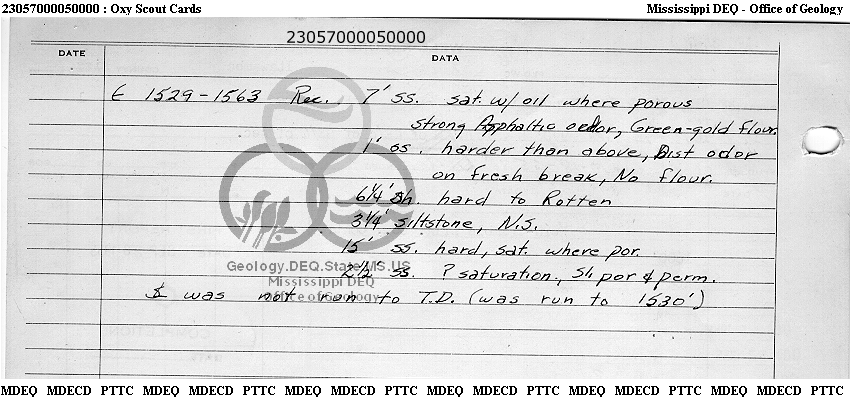 23057000050000 : Oxy Scout Cards Mississippi DEQ - Office of Geology
23057000050000
DATE DATA
₵ 1529-1563 Rec. 7' ss. sat. w/ oil where porous
strong Asphaltic odor, Green-gold flour.
1' ss. harder than above, Dist odor
on fresh break, No flour.
6 1/4' sh. hard to Rotten
3 1/4' siltstone, N.S.
15' ss. hard, sat. where por.
Geology.DEQ.State.MS.US
2 1/2' ss. ? saturation, Sli por & perm.
Mississippi DEQ
was not run to T.D. (was run to 1530')
Office of Geology
MDEQ MDECD PTTC MDEQ MDECD PTTC MDEQ MDECD PTTC MDEQ MDECD PTTC MDEQ MDECD PTTC MDEQ MDECD PTTC